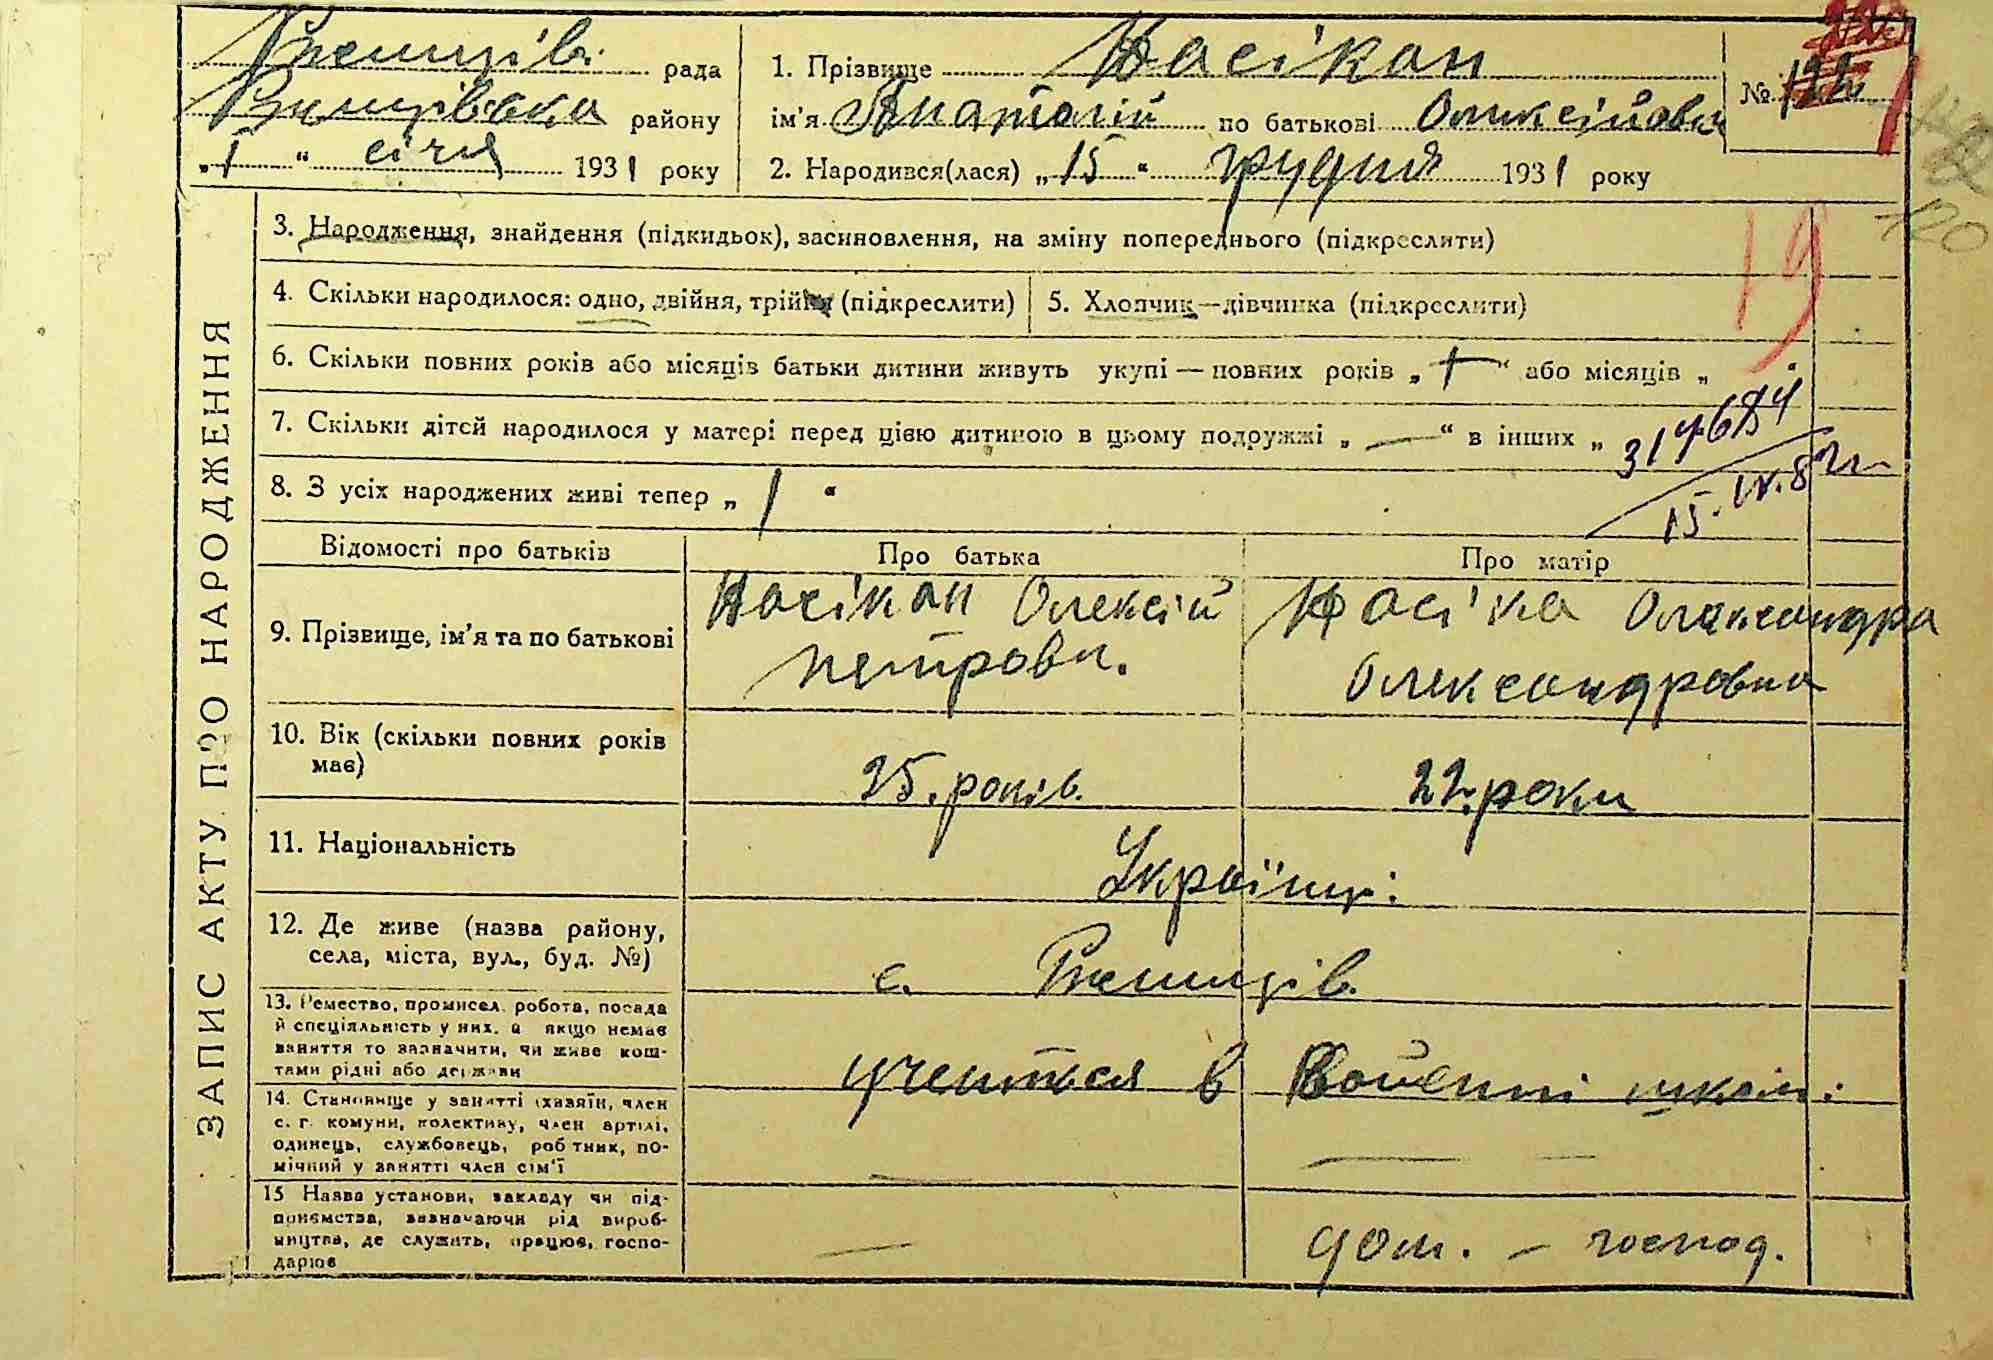 Ржищів. рада
Ржищівська району
„ 1 “ січня 1931 року
1. Прізвище Насікан
ім'я Анатолій по батькові Олексійович
№ 122
2. Народився(лася) „ 15 “ грудня 1931 року
19
120
ЗАПИС АКТУ ПРО НАРОДЖЕННЯ
3. Народження, знайдення (підкидьок), засиновлення, на зміну попереднього (підкреслити)
4. Скільки народилося: одно, двійня, трійня (підкреслити)
5. Хлопчик—дівчинка (підкреслити)
6. Скільки повних років або місяців батьки дитини живуть укупі — повних років „ 1 “ або місяців „
7. Скільки дітей народилося у матері перед цією дитиною в цьому подружжі „ — “ в інших „
8. З усіх народжених живі тепер „ 1 “
Відомості про батьків
Про батька
Про матір
9. Прізвище, ім'я та по батькові
Насікан Олексій
Петрови.
Насіка Олександра
Олександровна
10. Вік (скільки повних років
має)
25. років.
22. роки
11. Національність
Українці.
12. Де живе (назва району,
села, міста, вул., буд. №)
с. Ржищів.
13. Ремество, промисел, робота, посада
й спеціяльність у них, а якщо немає
заняття то зазначити, чи живе кош-
тами рідні або держави
учиться в Воєнні школі.
14. Становище у занятті (хазяїн, член
с. г. комуни, колективу, член артілі,
одинець, службовець, робітник, по-
мічний у занятті член сім'ї
15 Назва установи, закладу чи під-
приємства, зазначаючи рід вироб-
ництва, де служить, працює, госпо-
дарює
дом. — господ.